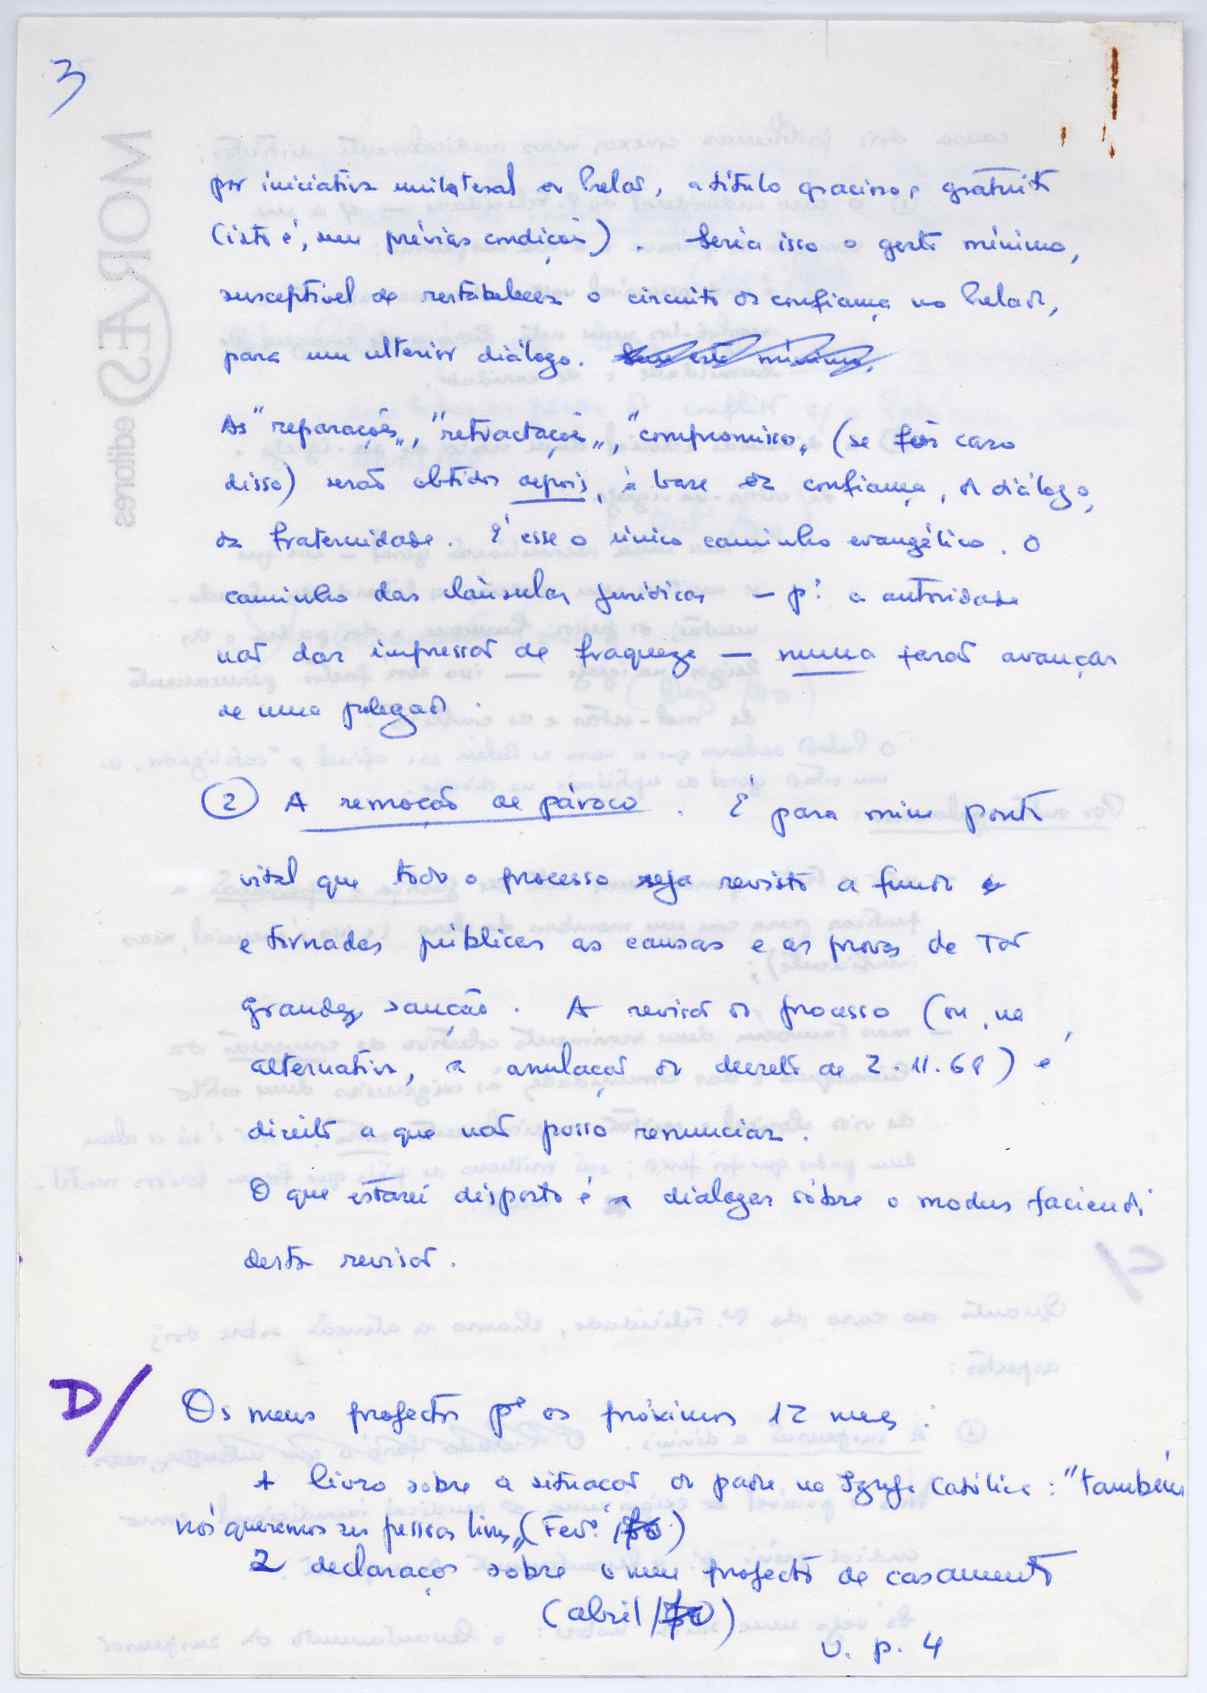 3
por iniciativa unilateral do Prelado, a título gracioso, gratuito
(isto é, sem prévias condições). Seria isso o gesto mínimo,
susceptível de restabelecer o circuito da confiança no Prelado,
para um ulterior diálogo. Sem este mínimo,
As "reparações", "retractações", "compromissos" (se fôr caro
disso) serão obtidos depois, à base da confiança, do diálogo,
da fraternidade. É esse o único caminho evangélico. O
caminho das cláusulas jurídicas — pª a autoridade
não dar impressão de fraqueza — nunca farão avançar
de uma polegada.
② A remoção de pároco. É para mim ponto
vital que todo o processo seja revisto a fundo
e tornadas públicas as causas e as provas de tão
grandes sanções. A revisão do processo (ou, na
alternativa, a anulação do decreto de 2.11.68) é
direito a que não posso renunciar.
O que estarei disposto é a dialogar sôbre o modus faciendi
desta revisão.
D/ Os meus projectos pª os próximos 12 meses:
1 livro sobre a situação do padre na Igreja Católica: "Também
nós queremos ser pessoas livres" (Fevº /70)
2 declarações sobre o meu projecto de casamento
(abril/70)
v. p. 4
MORÆS
editores